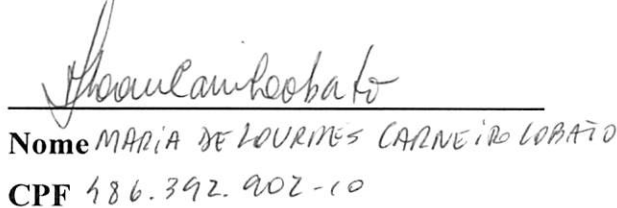 Nome MARIA DE LOURDES CARNEIRO LOBATO
CPF 486.392.902-10